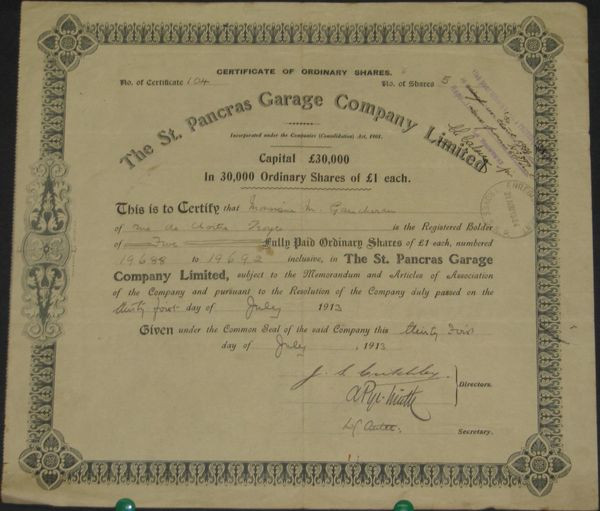 CERTIFICATE OF ORDINARY SHARES.
No. of Certificate 104 No. of Shares 5
The St. Pancras Garage Company Limited
Incorporated under the Companies (Consolidation) Act, 1908.
Capital £30,000
In 30,000 Ordinary Shares of £1 each.
This is to Certify that M.
of rue de Troyes is the Registered Holder
of Five Fully Paid Ordinary Shares of £1 each, numbered
19688 to 19692 inclusive, in The St. Pancras Garage
Company Limited, subject to the Memorandum and Articles of Association
of the Company and pursuant to the Resolution of the Company duly passed on the
thirty first day of July 1913
Given under the Common Seal of the said Company this thirty first
day of July, 1913
Directors.
Secretary.